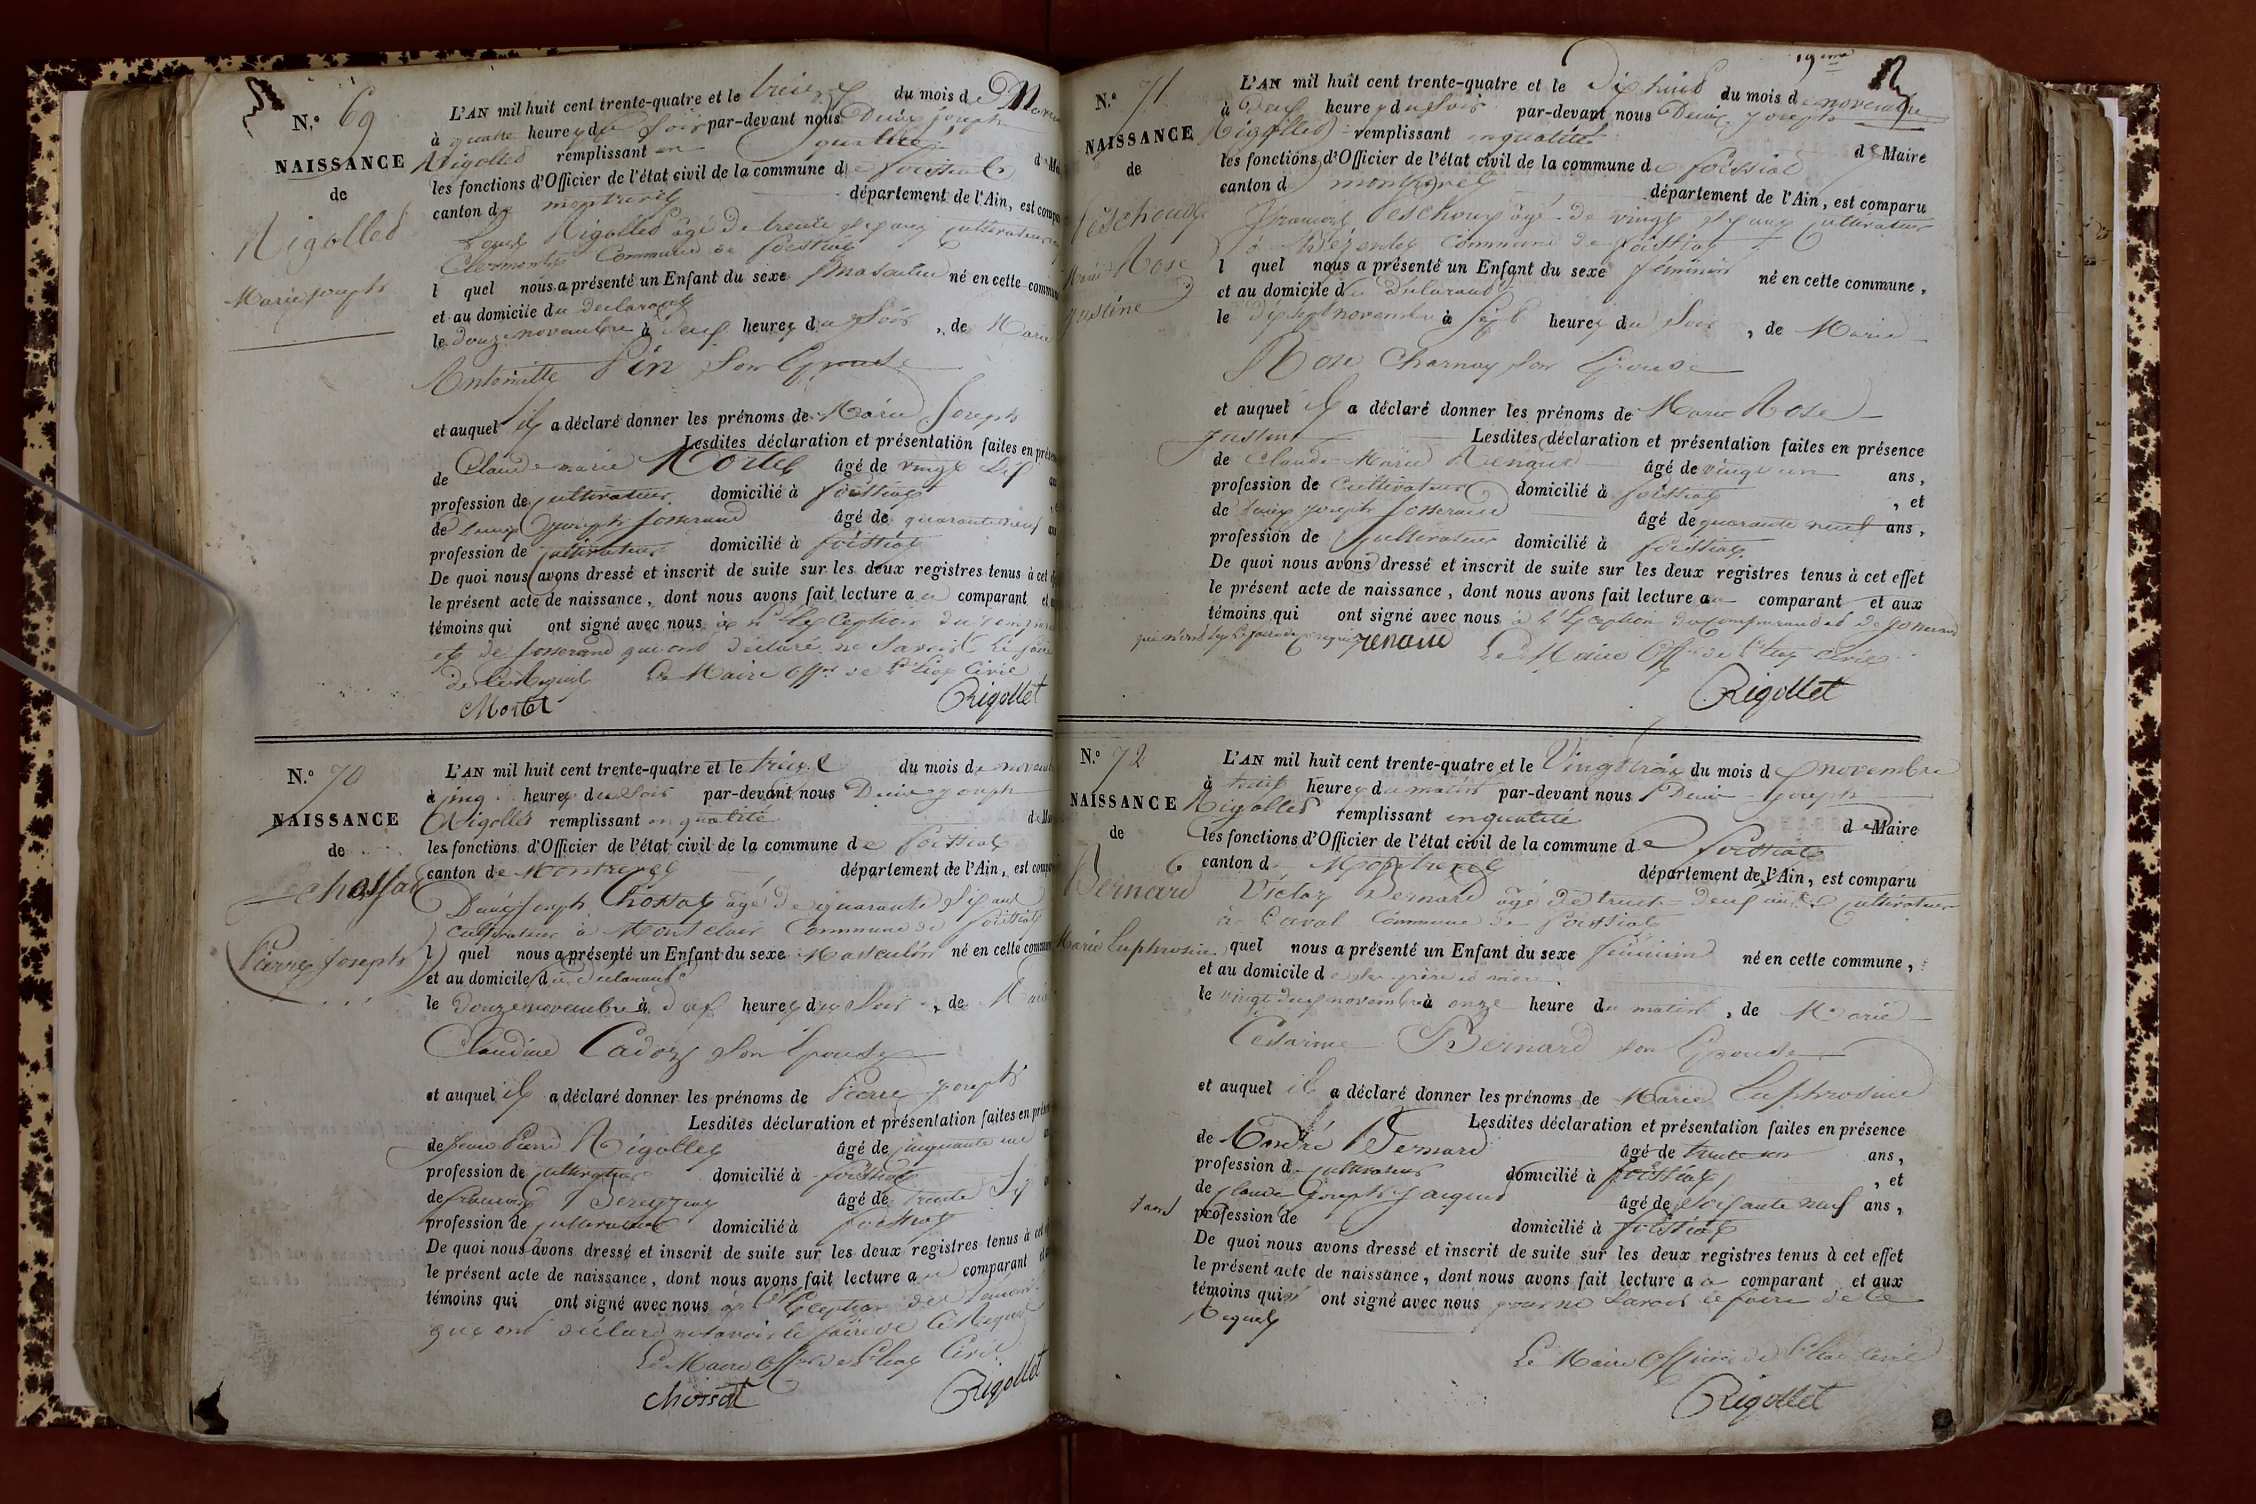 N.º 69
NAISSANCE
de
Rigollet
Marie joseph
L'AN mil huit cent trente-quatre et le treize du mois de
à quatre heures du soir par-devant nous Denis joseph
Rigollet remplissant en qualité
les fonctions d'Officier de l'état civil de la commune de foissiat
canton de montrevel département de l'Ain, est
Rigollet âgé de trente ans cultivateur
Commune de foissiat
l quel nous a présenté un Enfant du sexe Masculin né en cette
et au domicile du declarant
le douze novembre à heures du Soir, de Marie
Antoinette Pin Son Epouse
et auquel il a déclaré donner les prénoms de Marie Joseph
Lesdites déclaration et présentation faites en
de Claude marie Mortel âgé de vingt
profession de cultivateur domicilié à foissiat
de Denis Joseph Josserand âgé de quarante neuf
profession de cultivateur domicilié à foissiat
De quoi nous avons dressé et inscrit de suite sur les deux registres tenus à cet
le présent acte de naissance, dont nous avons fait lecture au comparant et
témoins qui ont signé avec nous à l'Exception du
et de Josserand qui ont déclaré ne Savoir le faire
de ce Requis Le Maire Off.er de l'Etat Civil
Mortel Rigollet
N.º 70
NAISSANCE
de
chossat
Pierre joseph
L'AN mil huit cent trente-quatre et le treize du mois de
à cinq heures du Soir par-devant nous Denis joseph
Rigollet remplissant en qualité
les fonctions d'Officier de l'état civil de la commune de foissiat
canton de Montrevel département de l'Ain, est
Denis joseph Chossat âgé de quarante ans
Cultivateur à Montclair Commune de foissiat
l quel nous a présenté un Enfant du sexe Masculin né en cette
et au domicile du declarant
le douze novembre à heures du Soir, de
Claudine Cadoz Son Epouse
et auquel il a déclaré donner les prénoms de Pierre joseph
Lesdites déclaration et présentation faites en
de Pierre Rigollet âgé de cinquante
profession de cultivateur domicilié à foissiat
de françois âgé de trente
profession de cultivateur domicilié à foissiat
De quoi nous avons dressé et inscrit de suite sur les deux registres tenus à
le présent acte de naissance, dont nous avons fait lecture au comparant
témoins qui ont signé avec nous à l'Exception des témoins
qui ont déclaré ne savoir le faire de ce Requis
Le Maire Off.er de l'Etat Civil
chossat Rigollet
19eme
N.º 71
NAISSANCE
de
Peschoux
Marie Rose
justine
L'AN mil huit cent trente-quatre et le Dix huit du mois de novembre
à heures du Soir par-devant nous Denis Joseph
Rigollet remplissant en qualité de Maire
les fonctions d'Officier de l'état civil de la commune de foissiat
canton de montrevel département de l'Ain, est comparu
françois Peschoux âgé de vingt ans cultivateur
à commune de foissiat
l quel nous a présenté un Enfant du sexe féminin né en cette commune,
et au domicile du déclarant
le dix sept novembre à sept heures du Soir, de Marie
Rose Charnay Son Epouse
et auquel il a déclaré donner les prénoms de Marie Rose
Justine Lesdites déclaration et présentation faites en présence
de Claude Marie Renaud âgé de vingt un ans,
profession de Cultivateur domicilié à foissiat, et
de Denis joseph Josserand âgé de quarante neuf ans,
profession de cultivateur domicilié à foissiat
De quoi nous avons dressé et inscrit de suite sur les deux registres tenus à cet effet
le présent acte de naissance, dont nous avons fait lecture au comparant et aux
témoins qui ont signé avec nous à l'Exception du comparant et de Josserand
renaud Le Maire Off.er de l'Etat Civil
Rigollet
N.º 72
NAISSANCE
de
Bernard
Marie Euphrosine
L'AN mil huit cent trente-quatre et le Vingt trois du mois de novembre
à huit heures du matin par-devant nous Denis Joseph
Rigollet remplissant en qualité de Maire
les fonctions d'Officier de l'état civil de la commune de foissiat
canton de Montrevel département de l'Ain, est comparu
Victor Bernard âgé de trente deux ans cultivateur
à Laval Commune de foissiat
l quel nous a présenté un Enfant du sexe féminin né en cette commune,
et au domicile de ses père et mère
le vingt deux novembre à onze heure du matin, de Marie
Césarine Bernard son Epouse
et auquel il a déclaré donner les prénoms de Marie Euphrosine
Lesdites déclaration et présentation faites en présence
de André Bernard âgé de trente un ans,
profession de cultivateur domicilié à foissiat, et
de Claude joseph jacquet âgé de soixante neuf ans,
sans profession de domicilié à foissiat
De quoi nous avons dressé et inscrit de suite sur les deux registres tenus à cet effet
le présent acte de naissance, dont nous avons fait lecture au comparant et aux
témoins qui n' ont signé avec nous pour ne Savoir le faire de ce
Requis
Le Maire Officier de l'Etat Civil
Rigollet